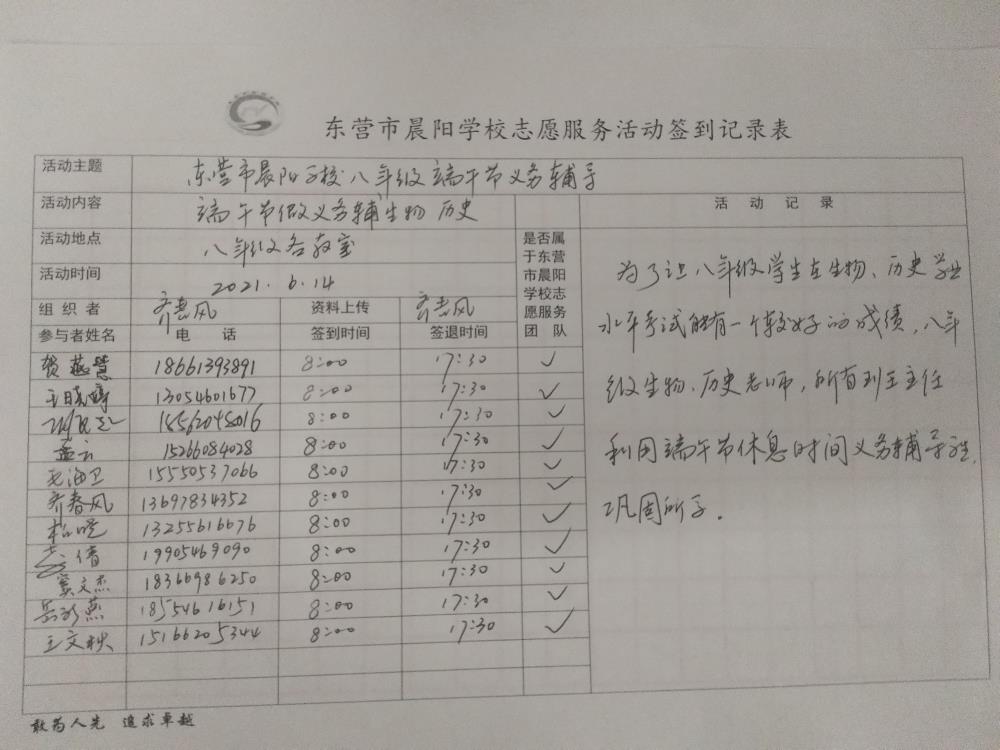 东营市晨阳学校志愿服务活动签到记录表
活动主题 东营市晨阳学校八年级端午节义务辅导
活动内容 端午节做义务辅 生物 历史 活动记录
活动地点 八年级各教室
活动时间 2021.6.14
是否属于东营市晨阳学校志愿服务团队
组织者 齐春风 资料上传 齐春风
参与者姓名 电话 签到时间 签退时间
贺燕慧 18661393891 8:00 17:30 ✓
王晓婷 13054601677 8:00 17:30 ✓
15562045016 8:00 17:30 ✓
孟云 15266084028 8:00 17:30 ✓
海卫 15550537066 8:00 17:30 ✓
齐春风 13697834352 8:00 17:30 ✓
13255616676 8:00 17:30 ✓
倩 19905469090 8:00 17:30 ✓
窦文杰 18366986250 8:00 17:30 ✓
燕 18554616151 8:00 17:30 ✓
王文秋 15166205344 8:00 17:30 ✓
为了让八年级学生在生物、历史学业
水平考试能有一个较好的成绩,八年
级生物、历史老师,所有班主任
利用端午节休息时间义务辅导班,
巩固所学.
敢为人先 追求卓越